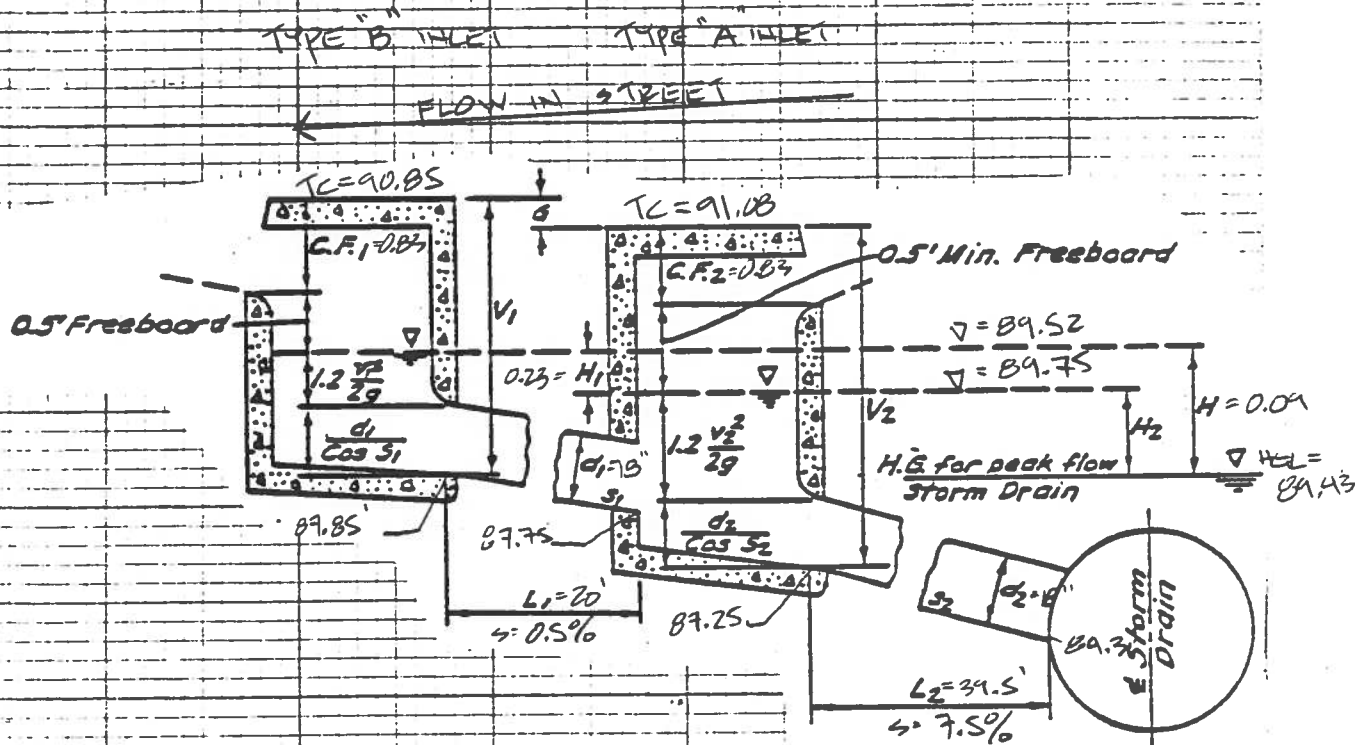 TYPE "B" INLET
TYPE "A" INLET
FLOW IN STREET
TC=90.85
TC=91.08
C.F.1=0.83
C.F.2=0.83
0.5' Min. Freeboard
0.5' Freeboard
V1
V2
∇=89.52
∇=89.75
0.23=H1
H2
H=0.09
1.2 v1²/2g
1.2 v2²/2g
d1/Cos S1
d2/Cos S2
d1=18"
S1
H.G. for peak flow
Storm Drain
HGL=
89.43
87.85'
87.75
87.25
L1=20'
s=0.5%
S2
d2=18"
L2=39.5'
s=7.5%
Storm
Drain